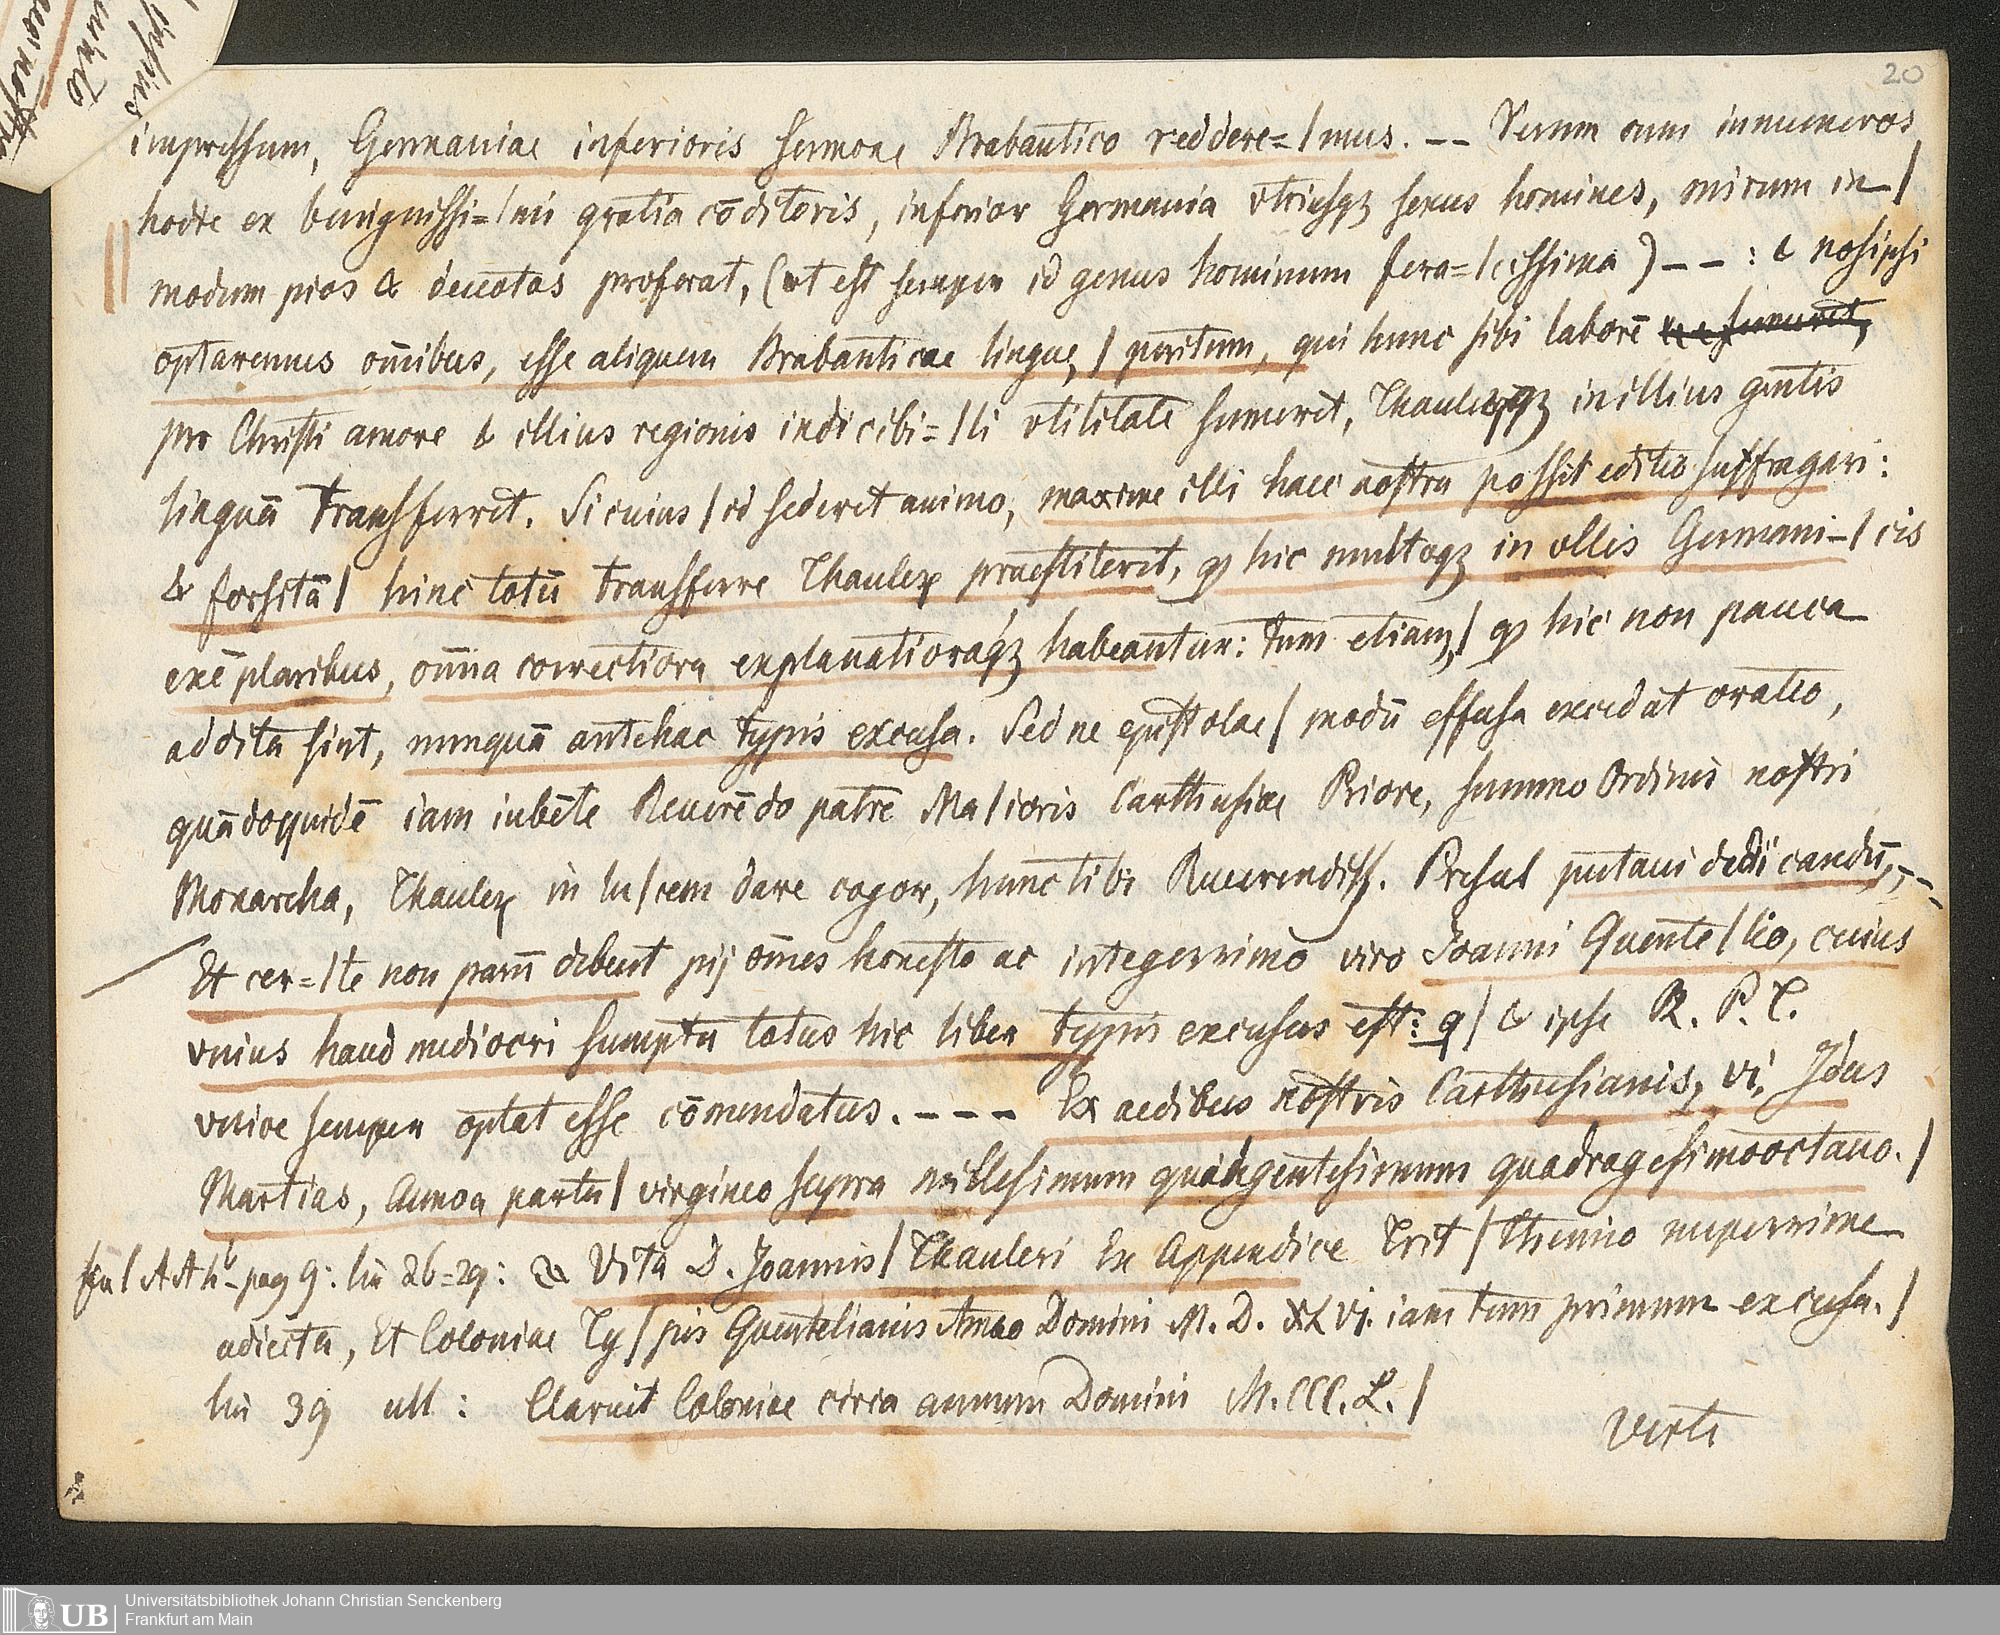 20
impressum, Germaniae inferioris sermone Brabantico reddere=/mus. -- Verum cum innumeros
hodie ex benignissi=/mi gratia cōditoris, inferior Germania vtriusqꝫ sexus homines, mirum in-/
modum pios & deuotos proferat, (vt est semper id genus hominum fera=/cissima) -- : & nosipsi
optaremus om̄ibus, esse aliquem Brabanticae lingue, / peritum, qui hunc sibi laborē
pro Christi amore & illius regionis indicibi=/li vtilitate sumeret, Thauleꝝqꝫ in illius gentis
linguā transferret. Si cuius / id sederet animo, maxime illi haec nostra possit editio suffragari:
& forsitā / hinc totū transferre Thauleꝝ praestiterit, ꝙ hic multoqꝫ in ollis Germani-/cis
exēplaribus, om̄ia correctiora explanatioraqꝫ habeantur: tum etiam, / ꝙ hic non pauca
addita sint, nunquā antehac typis excusa. Sed ne epistolae / modū effusa excedat oratio,
quādoquidē iam iubēte Reuerēdo patre Ma/ioris Carthusiae Priore, summo Ordinis nostri
Monarcha, Thauleꝝ in lu/cem dare cogor, hunc tibi Reuerendiss. Presul putaui dedicandū, --
Et cer=/te non parū debent pij om̄es honesto ac integerrimo viro Joanni Quente/lio, cuius
vnius haud mediocri sumptu totus hic liber typis excusus est: q / & ipse R. P. T.
vnice semper optat esse cōmendatus. --- Ex aedibus nostris Carthusianis, vi, Idus
Martias, Anno a partu / virgineo supra millesimum quingentesimum quadragesimooctauo. /
pag 9: lin 26-29: Vita D. Joannis / Thauleri Ex Appendice Trit/themio nuperrime
adiecta, Et Coloniae Ty/pis Quentelianis Anno Domini M. D. XLVj. iam tum primum excusa. /
lin 39 ult : Claruit Coloniae circa annum Domini M.CCC.L. /
verte
UB Universitätsbibliothek Johann Christian Senckenberg
Frankfurt am Main